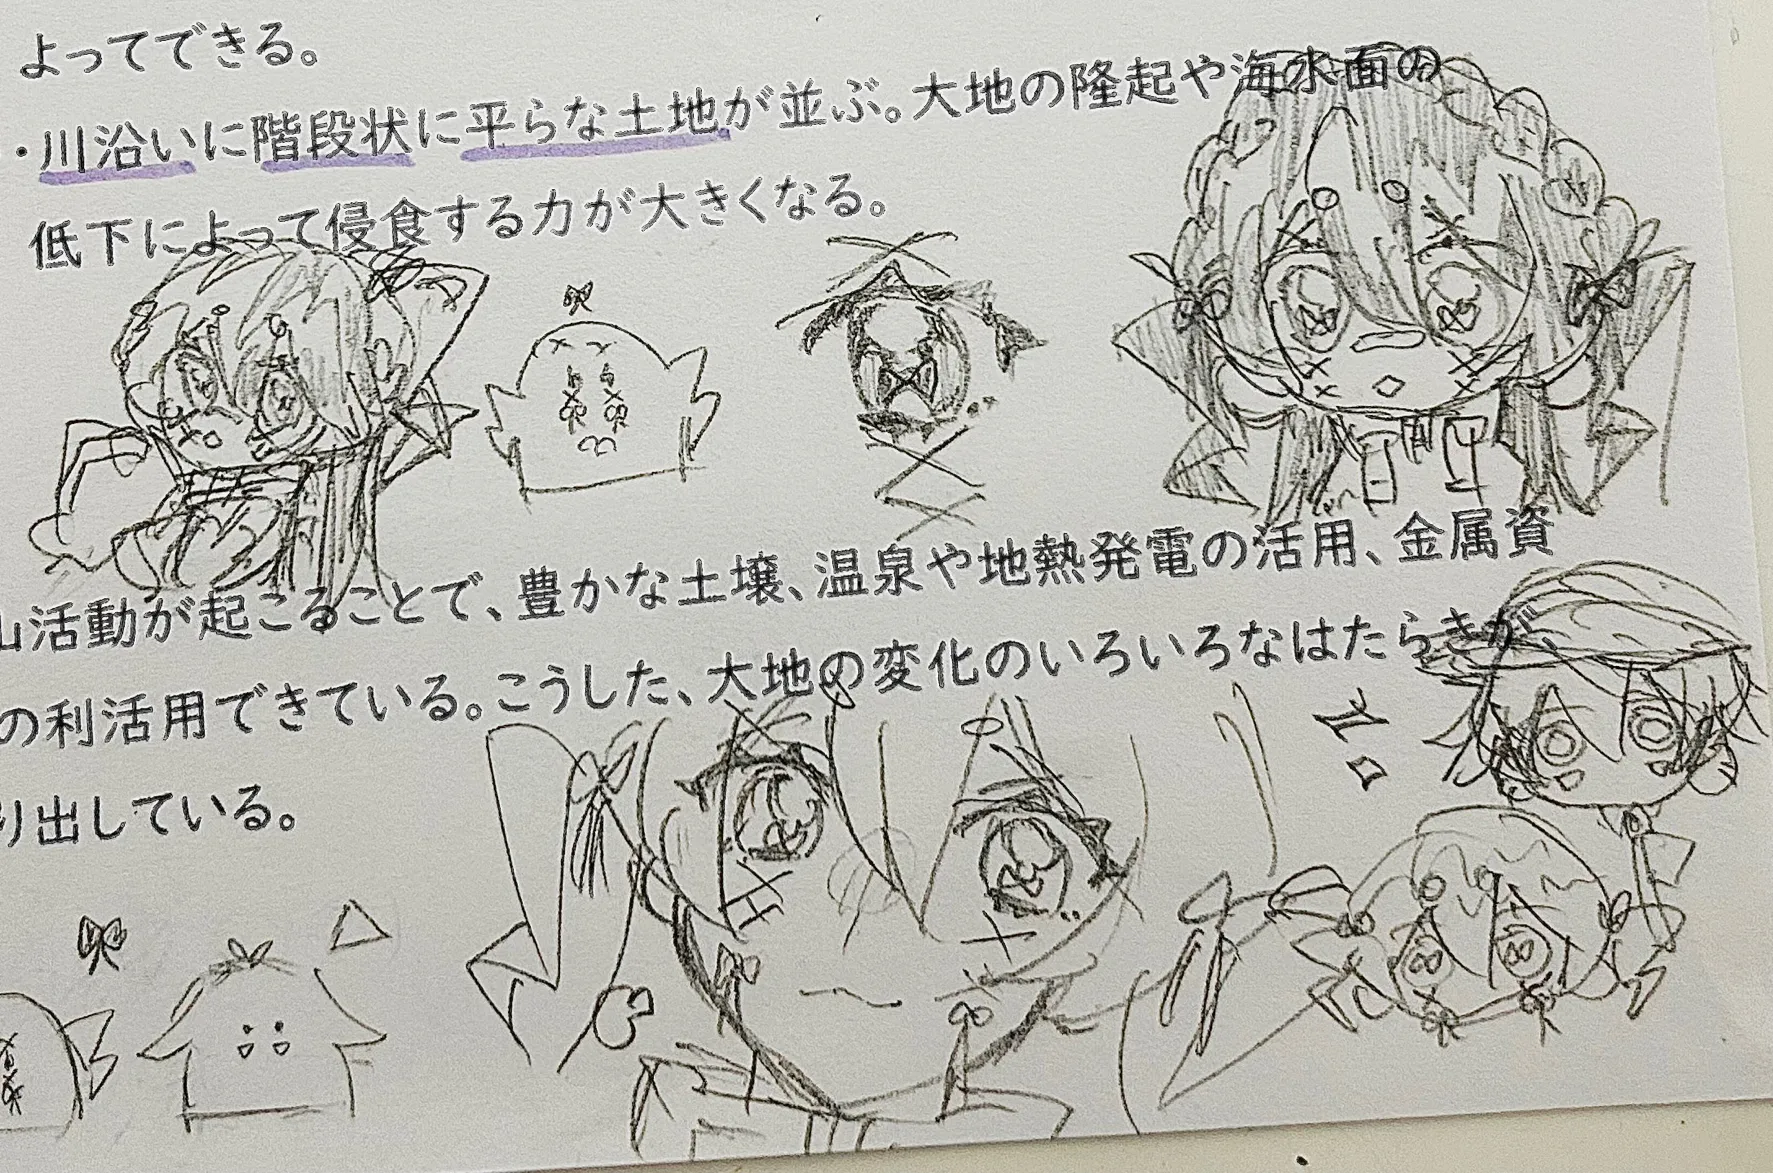 よってできる。
・川沿いに階段状に平らな土地が並ぶ。大地の隆起や海水面の
低下によって侵食する力が大きくなる。
山活動が起こることで、豊かな土壌、温泉や地熱発電の活用、金属資
の利活用できている。こうした、大地の変化のいろいろなはたらきが、
り出している。